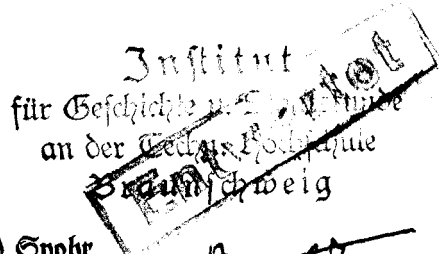 Institut
für Geschichte u.
an der Techn. Hochschule
Braunschweig
Entwertet
Spohr